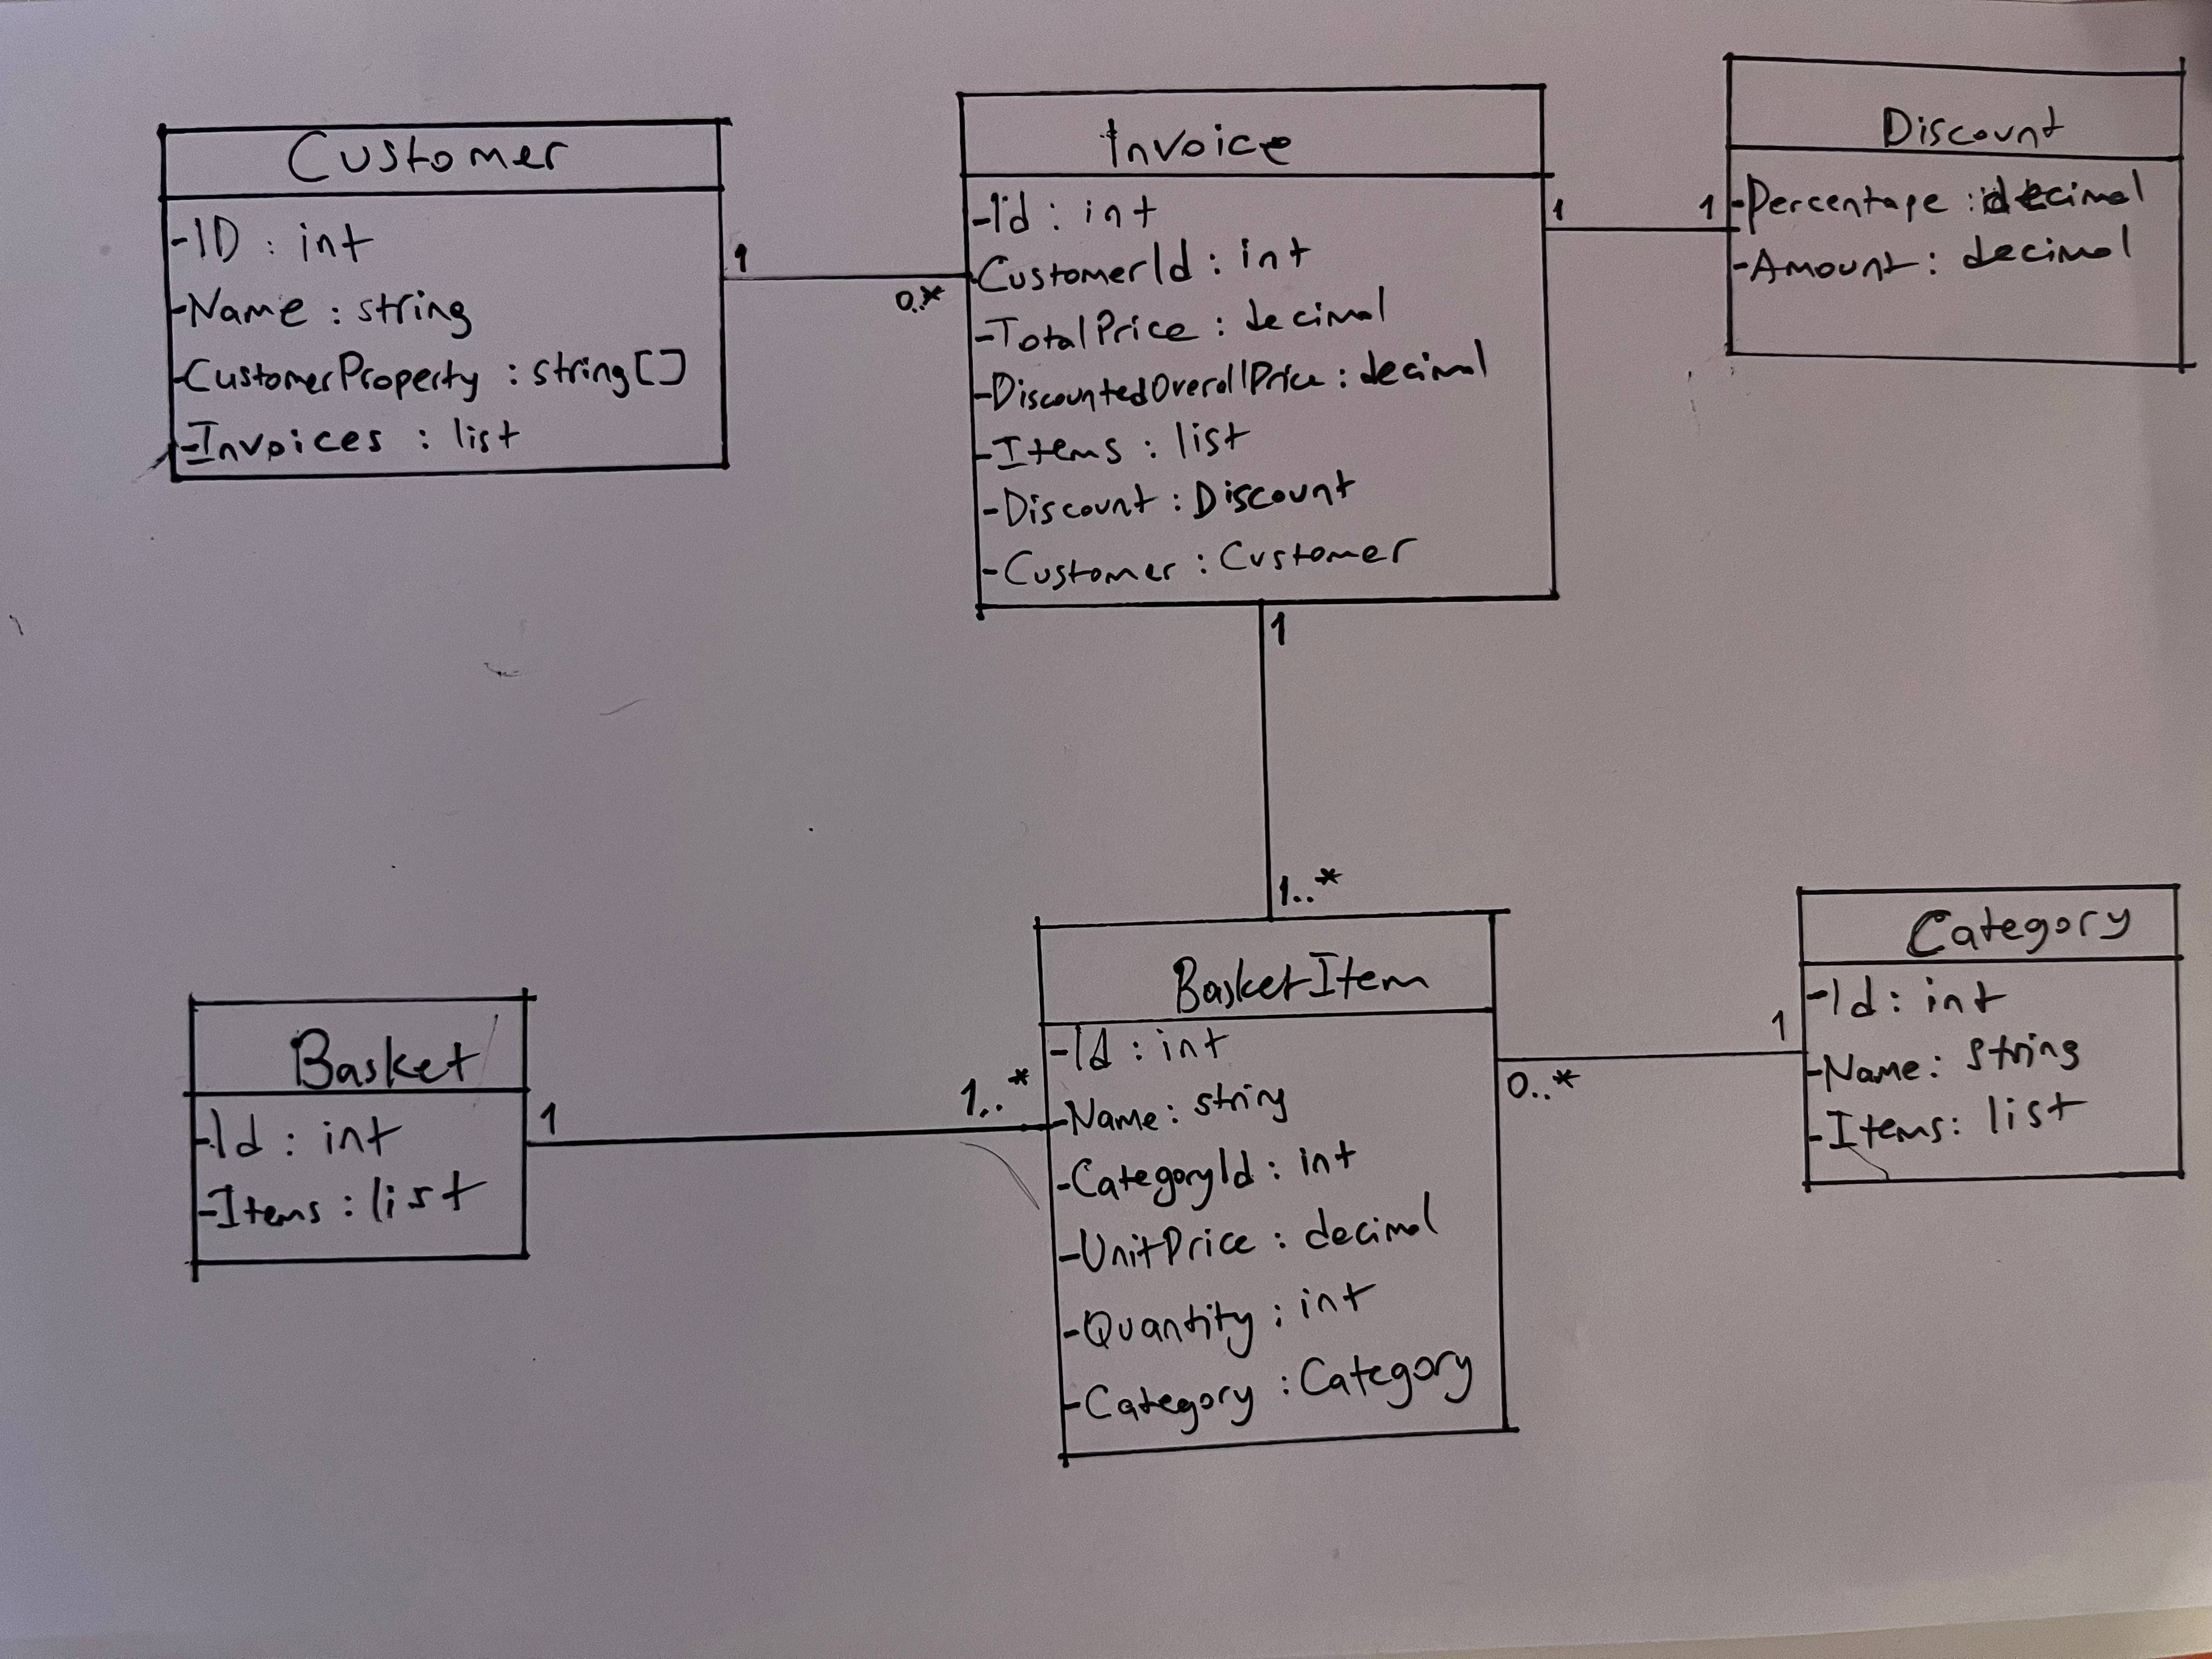 Customer
-ID : int
-Name : string
-CustomerProperty : string[]
-Invoices : list
1
0..*
Invoice
-Id : int
-CustomerId : int
-TotalPrice : decimal
-DiscountedOverallPrice : decimal
-Items : list
-Discount : Discount
-Customer : Customer
1
1
Discount
-Percentage : decimal
-Amount : decimal
1
1..*
Basket
-Id : int
-Items : list
1
1..*
BasketItem
-Id : int
-Name : string
-CategoryId : int
-UnitPrice : decimal
-Quantity : int
-Category : Category
0..*
1
Category
-Id : int
-Name : string
-Items : list